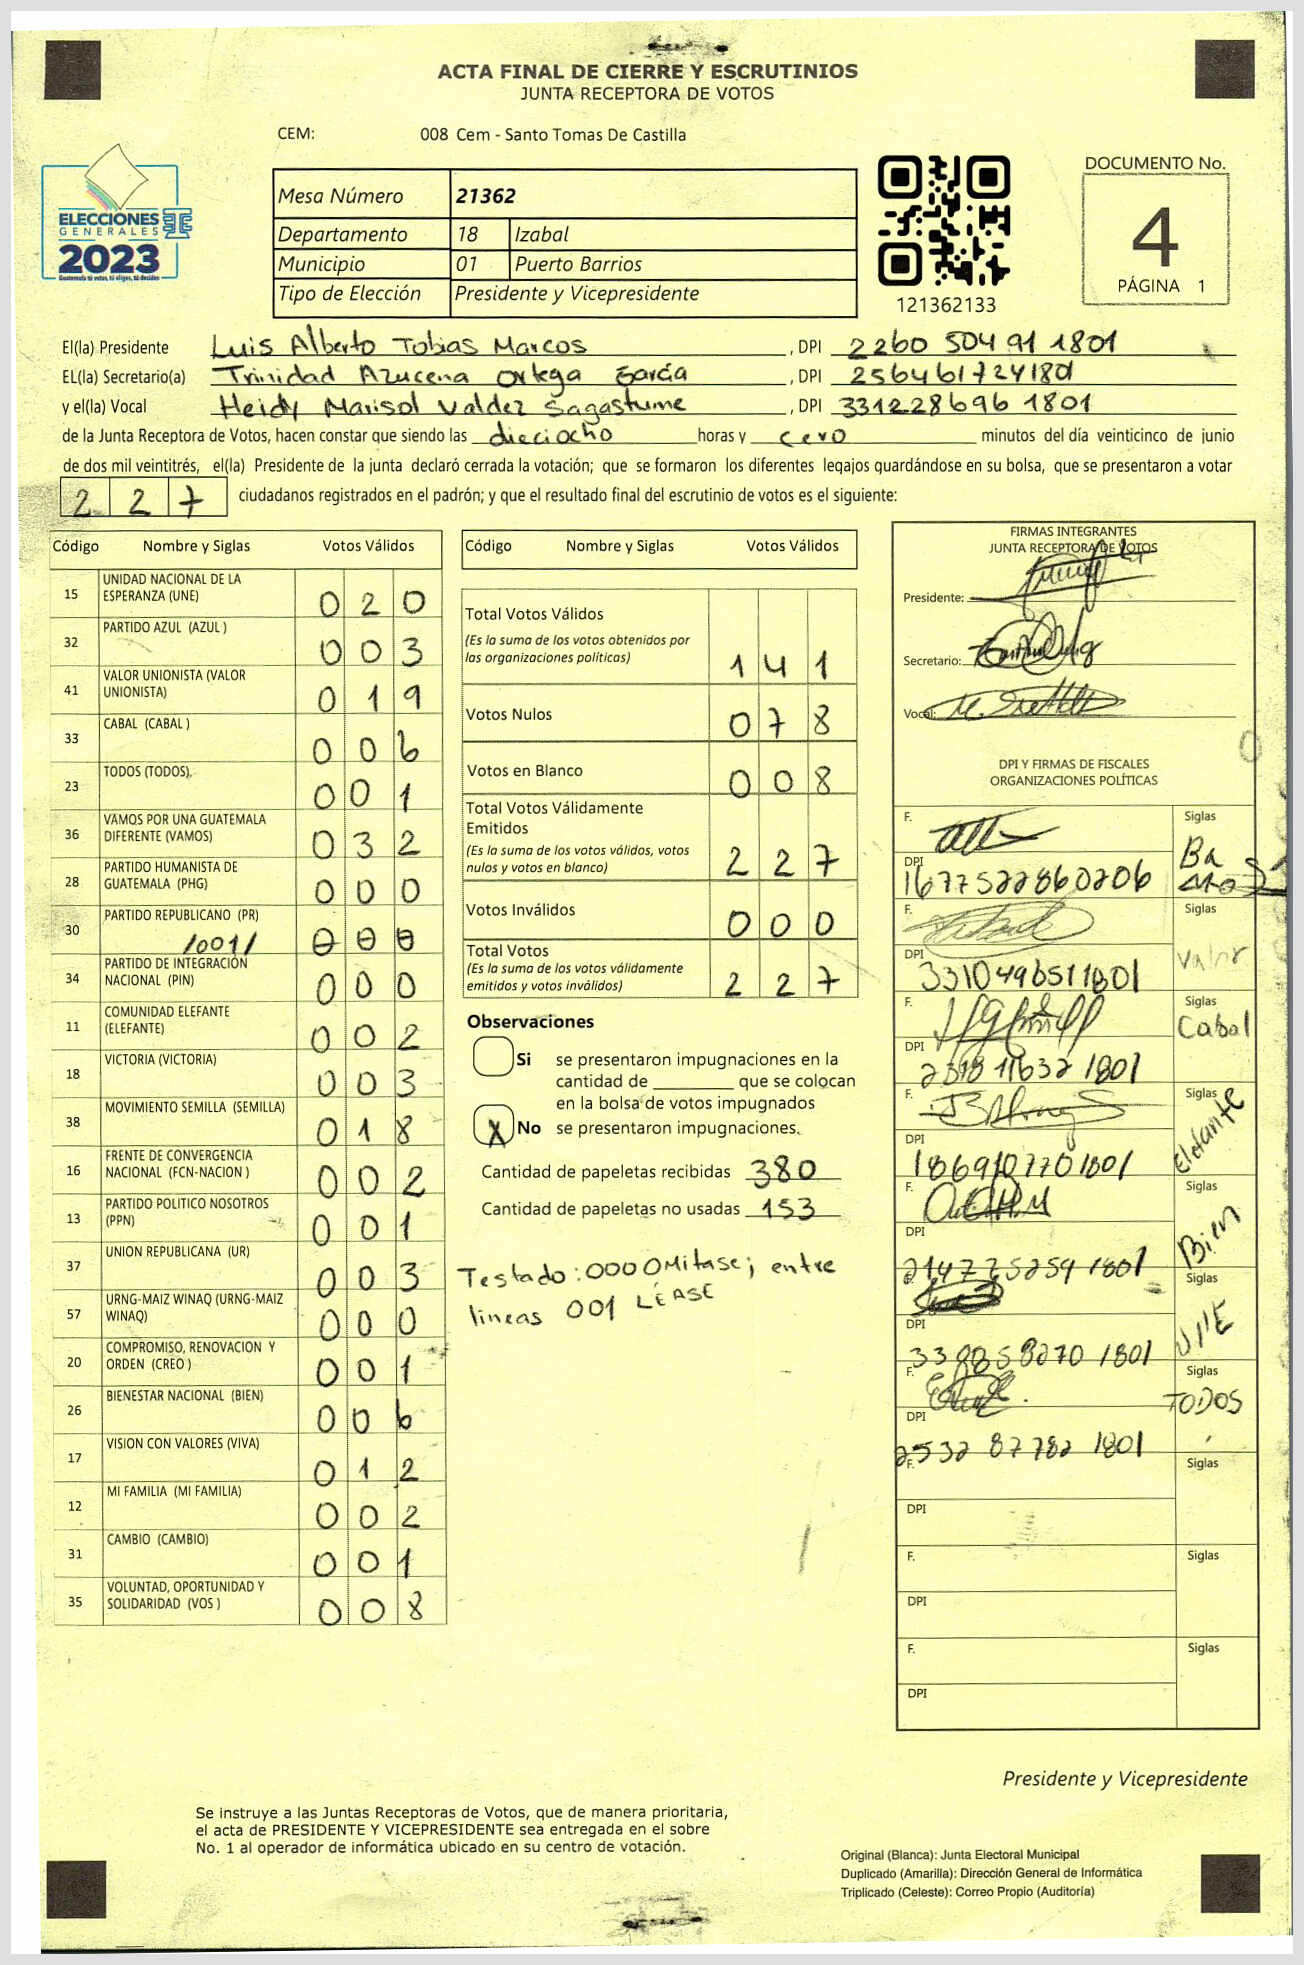 ACTA FINAL DE CIERRE Y ESCRUTINIOS
JUNTA RECEPTORA DE VOTOS
CEM: 008 Cem - Santo Tomas De Castilla
ELECCIONES
GENERALES
2023
Mesa Número 21362
Departamento 18 Izabal
Municipio 01 Puerto Barrios
Tipo de Elección Presidente y Vicepresidente
121362133
DOCUMENTO No.
4
PÁGINA 1
El(la) Presidente Luis Alberto Tobias Marcos , DPI 2260 50491 1801
EL(la) Secretario(a) Trinidad Azucena Ortega García , DPI 2564617241801
y el(la) Vocal Heidy Marisol Valdez Sagastume , DPI 331228696 1801
de la Junta Receptora de Votos, hacen constar que siendo las dieciocho horas y cero minutos del día veinticinco de junio
de dos mil veintitrés, el(la) Presidente de la junta declaró cerrada la votación; que se formaron los diferentes legajos guardándose en su bolsa, que se presentaron a votar
227 ciudadanos registrados en el padrón; y que el resultado final del escrutinio de votos es el siguiente:
Código Nombre y Siglas Votos Válidos
15 UNIDAD NACIONAL DE LA ESPERANZA (UNE) 020
32 PARTIDO AZUL (AZUL ) 003
41 VALOR UNIONISTA (VALOR UNIONISTA) 019
33 CABAL (CABAL ) 006
23 TODOS (TODOS) 001
36 VAMOS POR UNA GUATEMALA DIFERENTE (VAMOS) 032
28 PARTIDO HUMANISTA DE GUATEMALA (PHG) 000
30 PARTIDO REPUBLICANO (PR) /001/ 000
34 PARTIDO DE INTEGRACIÓN NACIONAL (PIN) 000
11 COMUNIDAD ELEFANTE (ELEFANTE) 002
18 VICTORIA (VICTORIA) 003
38 MOVIMIENTO SEMILLA (SEMILLA) 018
16 FRENTE DE CONVERGENCIA NACIONAL (FCN-NACION ) 002
13 PARTIDO POLITICO NOSOTROS (PPN) 001
37 UNION REPUBLICANA (UR) 003
57 URNG-MAIZ WINAQ (URNG-MAIZ WINAQ) 000
20 COMPROMISO, RENOVACION Y ORDEN (CREO ) 001
26 BIENESTAR NACIONAL (BIEN) 006
17 VISION CON VALORES (VIVA) 012
12 MI FAMILIA (MI FAMILIA) 002
31 CAMBIO (CAMBIO) 001
35 VOLUNTAD, OPORTUNIDAD Y SOLIDARIDAD (VOS ) 008
Código Nombre y Siglas Votos Válidos
Total Votos Válidos 141
(Es la suma de los votos obtenidos por
las organizaciones políticas)
Votos Nulos 078
Votos en Blanco 008
Total Votos Válidamente
Emitidos 227
(Es la suma de los votos válidos, votos
nulos y votos en blanco)
Votos Inválidos 000
Total Votos 227
(Es la suma de los votos válidamente
emitidos y votos inválidos)
Observaciones
Si se presentaron impugnaciones en la
cantidad de ________ que se colocan
en la bolsa de votos impugnados
X No se presentaron impugnaciones.
Cantidad de papeletas recibidas 380
Cantidad de papeletas no usadas 153
Testado: 000 Omitase; entre
lineas 001 LÉASE
FIRMAS INTEGRANTES
JUNTA RECEPTORA DE VOTOS
Presidente:
Secretario:
Vocal:
DPI Y FIRMAS DE FISCALES
ORGANIZACIONES POLÍTICAS
F. Siglas
DPI 1677522860206
F. Siglas Valor
DPI 3310496511801
F. Siglas Cabal
DPI 2318 11632 1801
F. Siglas Elefante
DPI 1869107701801
F. Siglas Bien
DPI 214725259 1801
F. Siglas UNE
DPI 338858270 1801
F. Siglas TODOS
DPI 2532 87782 1801
F. Siglas
DPI
F. Siglas
DPI
F. Siglas
DPI
Presidente y Vicepresidente
Se instruye a las Juntas Receptoras de Votos, que de manera prioritaria,
el acta de PRESIDENTE Y VICEPRESIDENTE sea entregada en el sobre
No. 1 al operador de informática ubicado en su centro de votación.
Original (Blanca): Junta Electoral Municipal
Duplicado (Amarilla): Dirección General de Informática
Triplicado (Celeste): Correo Propio (Auditoría)